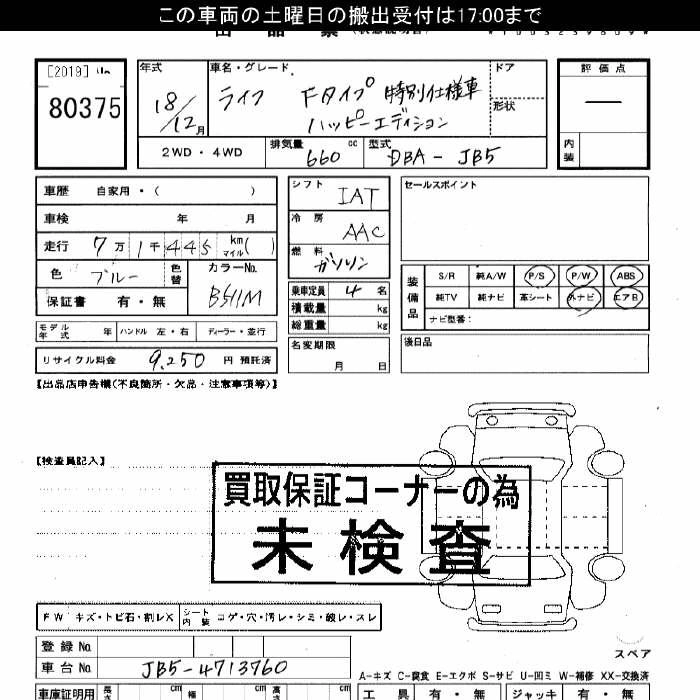 この車両の土曜日の搬出受付は17:00まで
[2019]
80375
年式
18/12月
車名・グレード
ライフ Fタイプ 特別仕様車
ハッピーエディション
ドア
形状
評価点
—
内装
2WD・4WD
排気量 660 cc
型式 DBA-JB5
車歴 自家用・( )
車検 年 月
走行 7万1千445 km マイル( )
色 ブルー 色替
カラーNo. B511M
保証書 有・無
モデル年式 年 ハンドル 左・右 ディーラー・並行
リサイクル料金 9,250 円 預託済
シフト IAT
冷房 AAC
燃料 ガソリン
乗車定員 4 名
積載量 kg
総重量 kg
名変期限
月 日
セールスポイント
装備品
S/R 純A/W P/S P/W ABS
純TV 純ナビ 革シート 外ナビ エアB
ナビ型番:
後日品
【出品店申告欄(不良箇所・欠品・注意事項等)】
【検査員記入】
買取保証コーナーの為
未検査
FW キズ・トビ石・割レX
シート内装 コゲ・穴・汚レ・シミ・破レ・スレ
登録No.
車台No. JB5-4713760
スペア
A-キズ C-腐食 E-エクボ S-サビ U-凹ミ W-補修 XX-交換済
車庫証明用 長さ cm 幅 cm 高さ cm
工具 有・無 ジャッキ 有・無